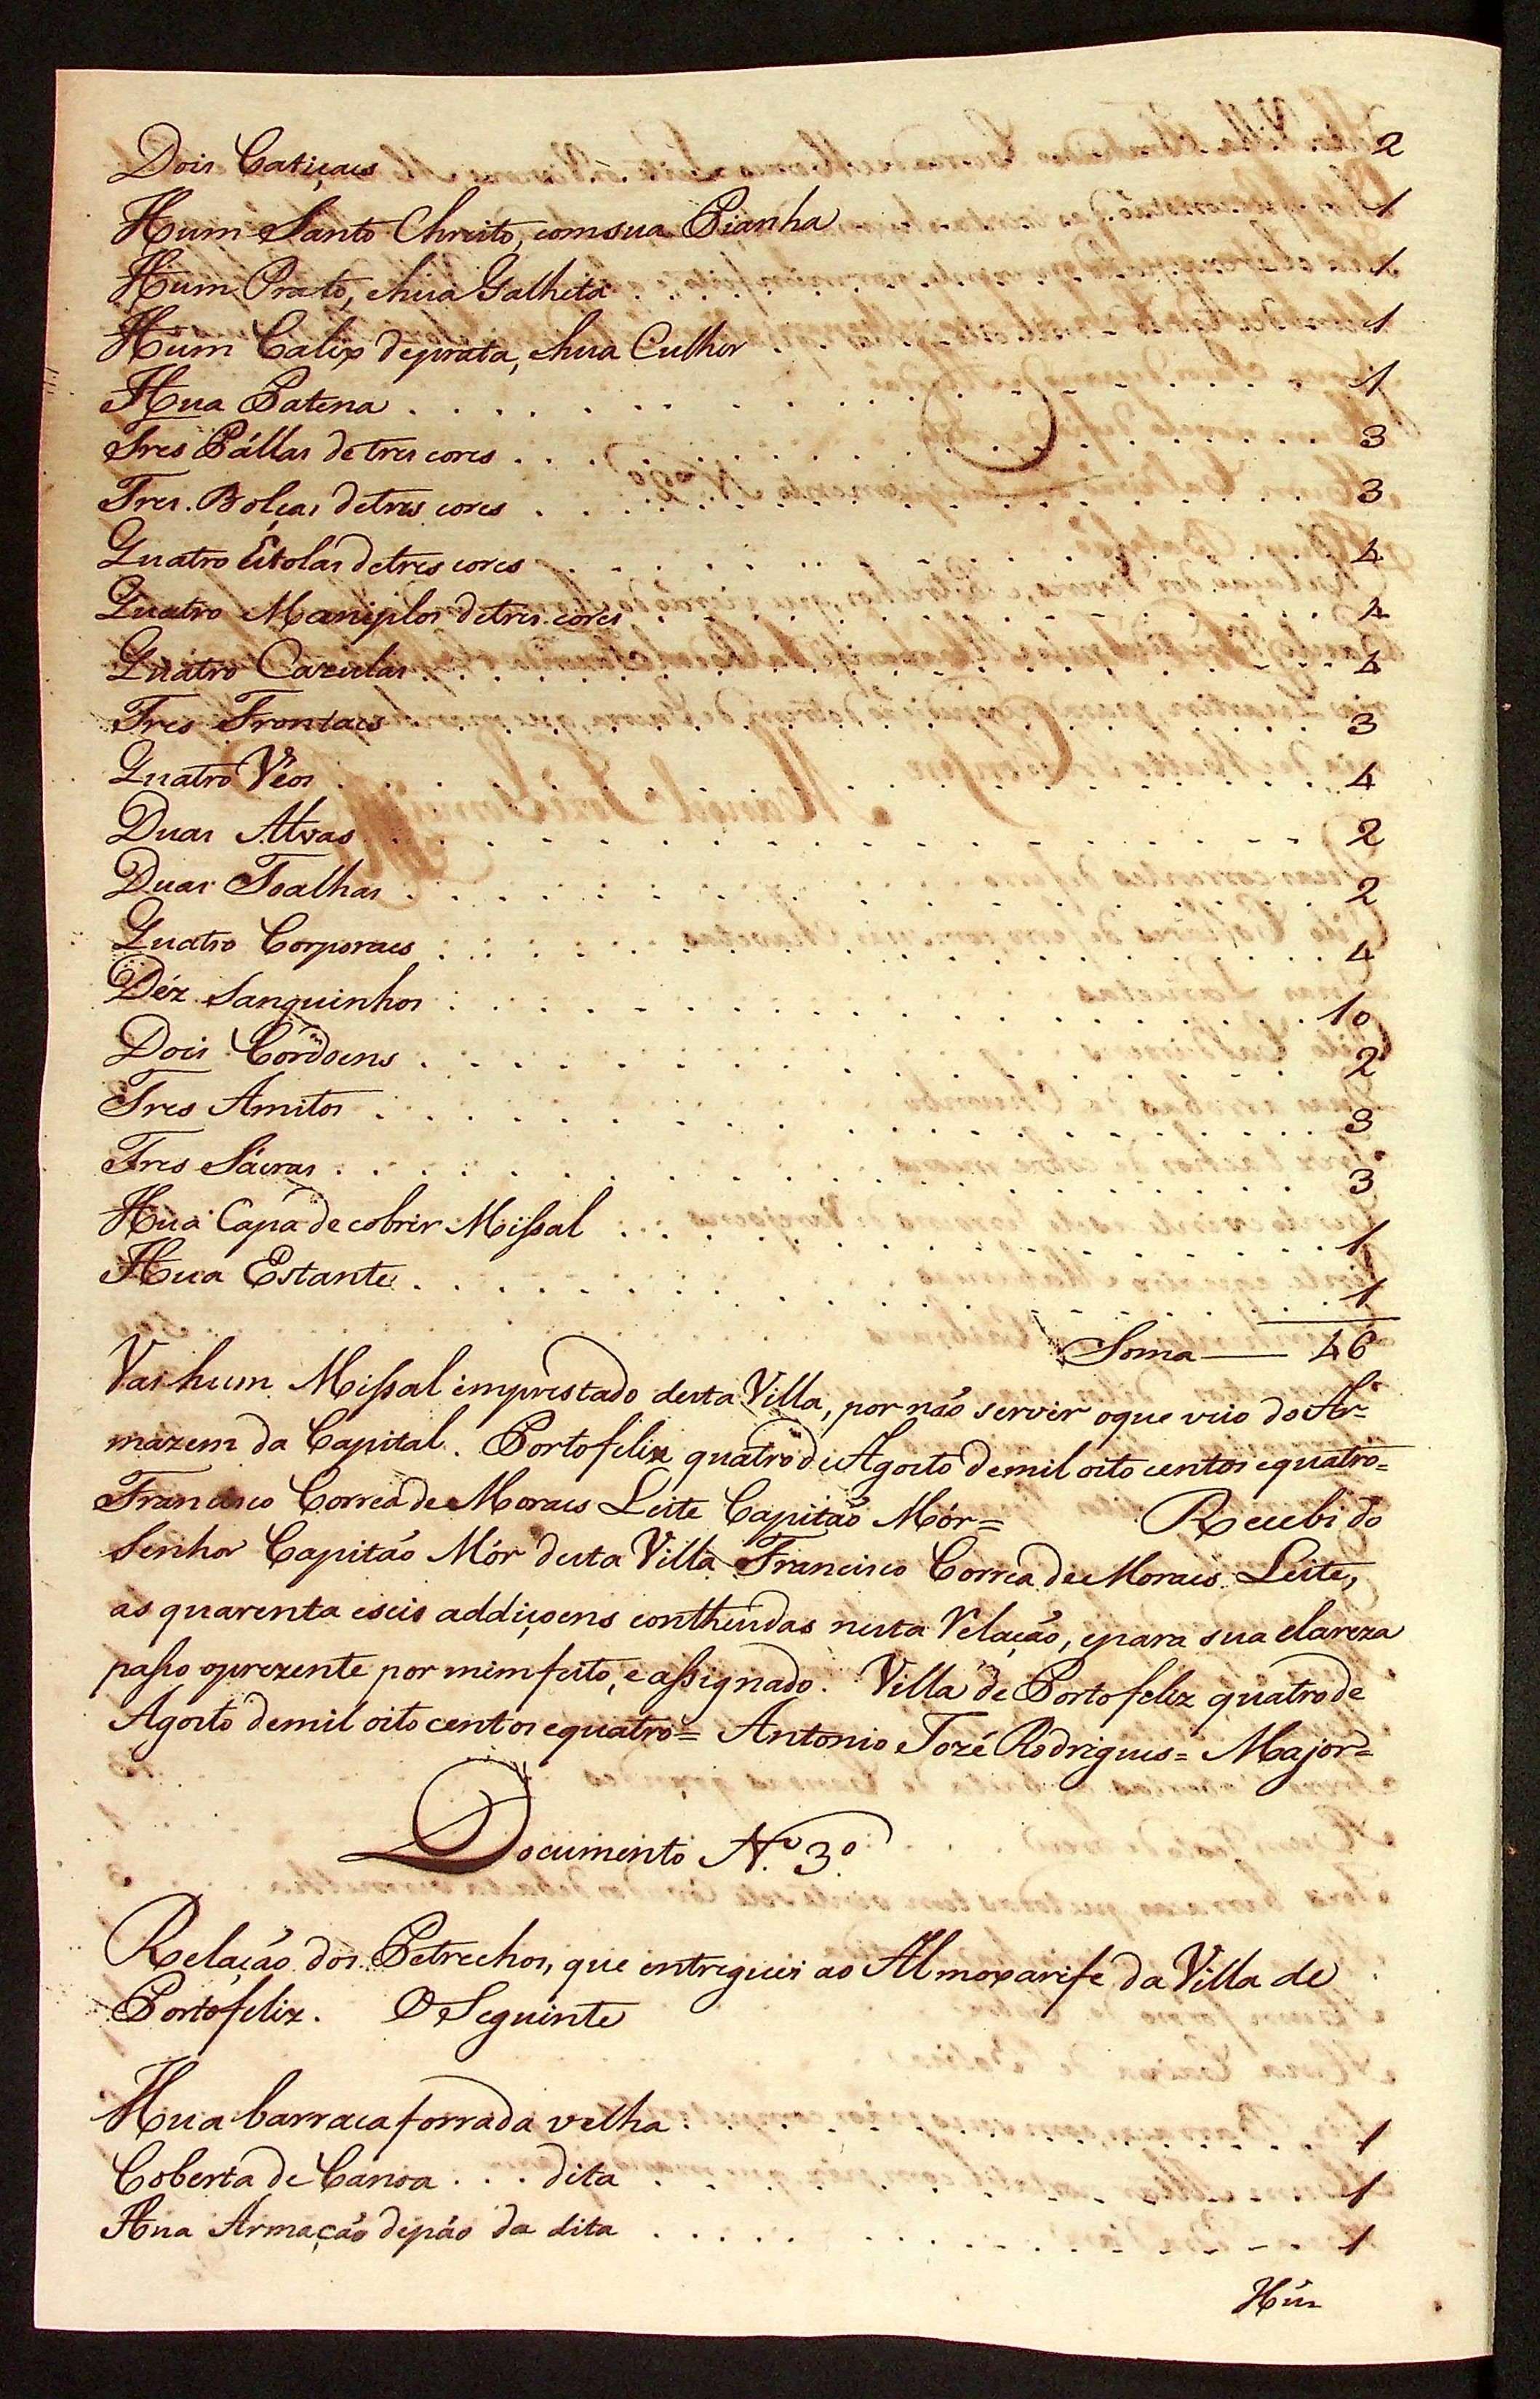 Dois Catiçaes 2
Hum Santo Christo, comsua Pianha 1
Hum Prato, ehua Galheta 1
Hum Calix deprata, ehua Culher 1
Hua Patena . . . . . . 1
Tres Pállas detres cores . . . . . . 3
Tres Bolças detres cores . . . . . . 3
Quatro Estolas detres cores . . . . . . 4
Quatro Maniplos detres cores . . . . . . 4
Quatro Cazulas . . . . . . 4
Tres Frontaes . . . . . . 3
Quatro Véos . . . . . . 4
Duas Alvas . . . . . . 2
Duas Toalhas . . . . . . 2
Quatro Corporaes . . . . . . 4
Déz Sanguinhos . . . . . . 10
Dois Cordoens . . . . . . 2
Tres Amitos . . . . . . 3
Tres Sácras . . . . . . 3
Hua Capa de cobrir Missal . . . . . . 1
Hua Estante . . . . . . 1
Soma — 46
Vai hum Missal imprestado desta Villa, por não servir oque veio do Ar=
mazem da Capital. Portofeliz quatro de Agosto demil oito centos equatro=
Francisco Correa de Moraes Leite Capitão Mór= Recebi do
Senhor Capitão Mór desta Villa Francisco Correa de Moraes Leite,
as quarenta eseis addiçoens contheudas nesta Relação, epara sua clareza
passo oprezente por mim feito, e assignado. Villa de Portofeliz quatro de
Agosto demil oito centos equatro= Antonio Jozé Rodrigues= Major=
Documento N.º 3.º
Relação dos Petrechos, que entreguei ao Almoxarife da Villa de
Portofeliz. O Seguinte
Hua barraca forrada velha . . . . . . 1
Coberta de Canoa . . . dita . . . . . . 1
Hua Armação depáo da dita . . . . . . 1
Hũ